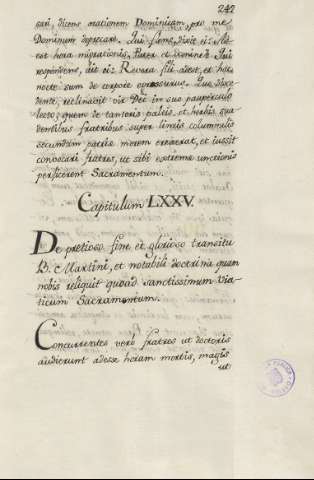 242
sari, dicens orationem Dominicam, pro me
Dominum deprecare. Qui flens, dixit ei: Et
est hora migrationis, Pater et Domine? Qui
respondens, ait ei: Revera fili adest, et hac
nocte sum de corpore egressurus. Quo disce-
dente, reclinavit vir Dei in suo paupercu
lecto, quem de tantoris paleis, et herbis
dentibus fratribus super limis columnalis
secundum patris morem erexerat, et iussit
convocari fratres, ut sibi extremæ unctionis
perficerent Sacramentum.
Capitulum LXXV.
De pretioso fine et glorioso transitu
B. Martini, et notabili doctrina quam
nobis reliquit quoad sanctissimum Via-
ticum Sacramentum.
Concurrentes verò fratres ut doctoris
audierunt adesse horam mortis, magis
ut